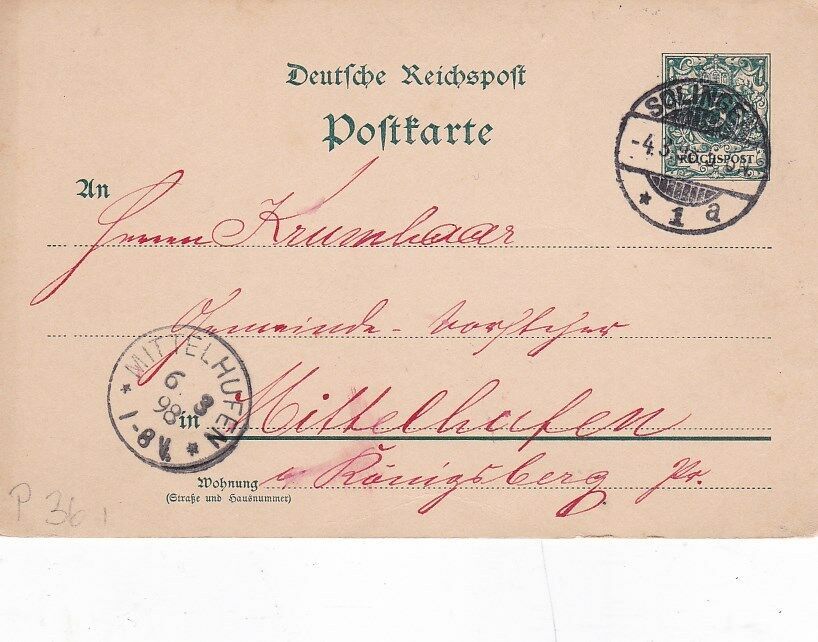 Deutsche Reichspost
Postkarte
REICHSPOST
SOLINGEN
-4.3.98
* 1 a
An
Herrn Krumhaar
Gemeinde-Vorsteher
in Mittelhufen
Königsberg Pr.
Wohnung
(Straße und Hausnummer)
MITTELHUFEN
6 3
98
* 8-1 V. *
P 36 i